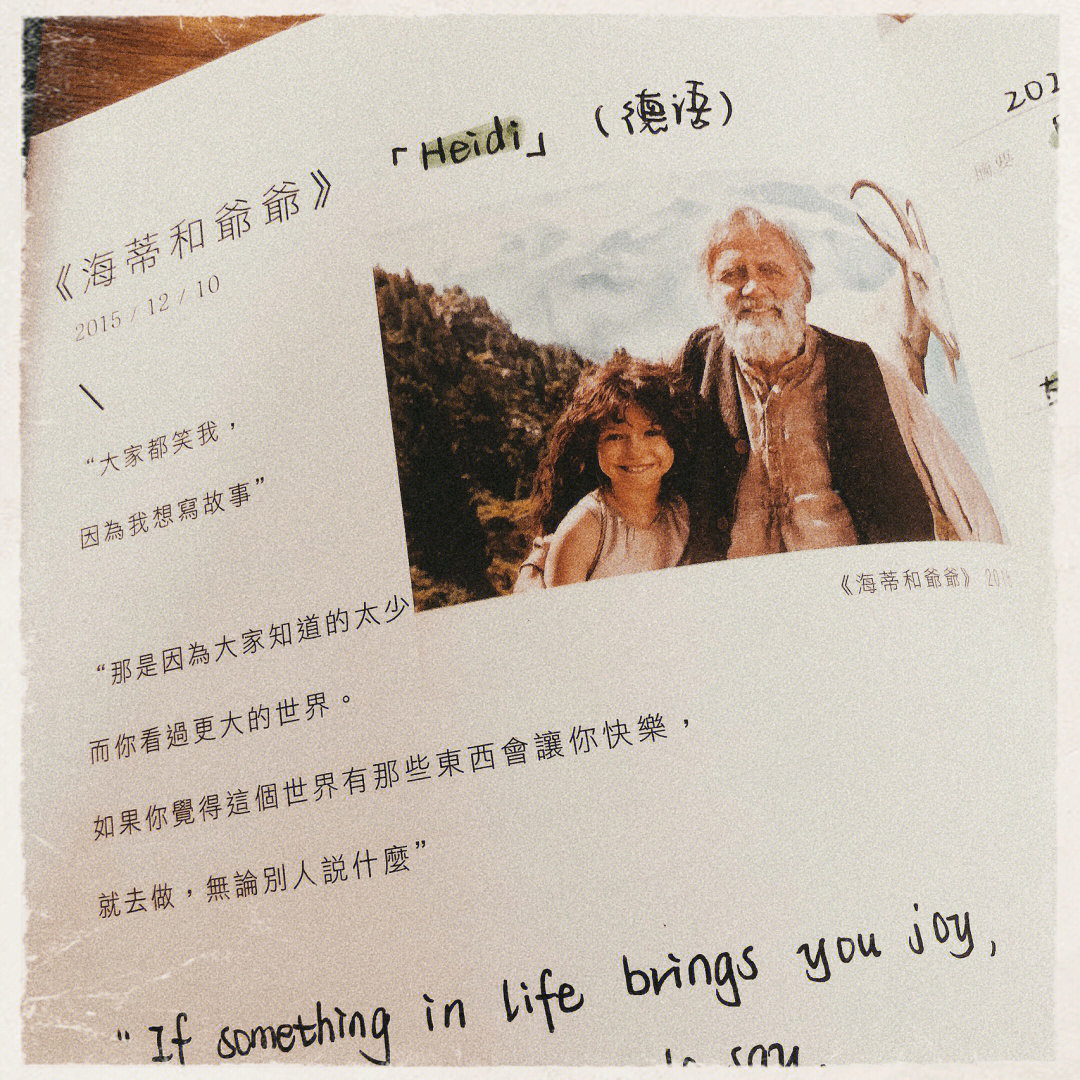 「Heidi」（德语）
《海蒂和爺爺》
2015 / 12 / 10
\
“大家都笑我，
因為我想寫故事”
《海蒂和爺爺》
“那是因為大家知道的太少
而你看過更大的世界。
如果你覺得這個世界有那些東西會讓你快樂，
就去做，無論別人説什麼”
“If something in life brings you joy,
say,
摘要